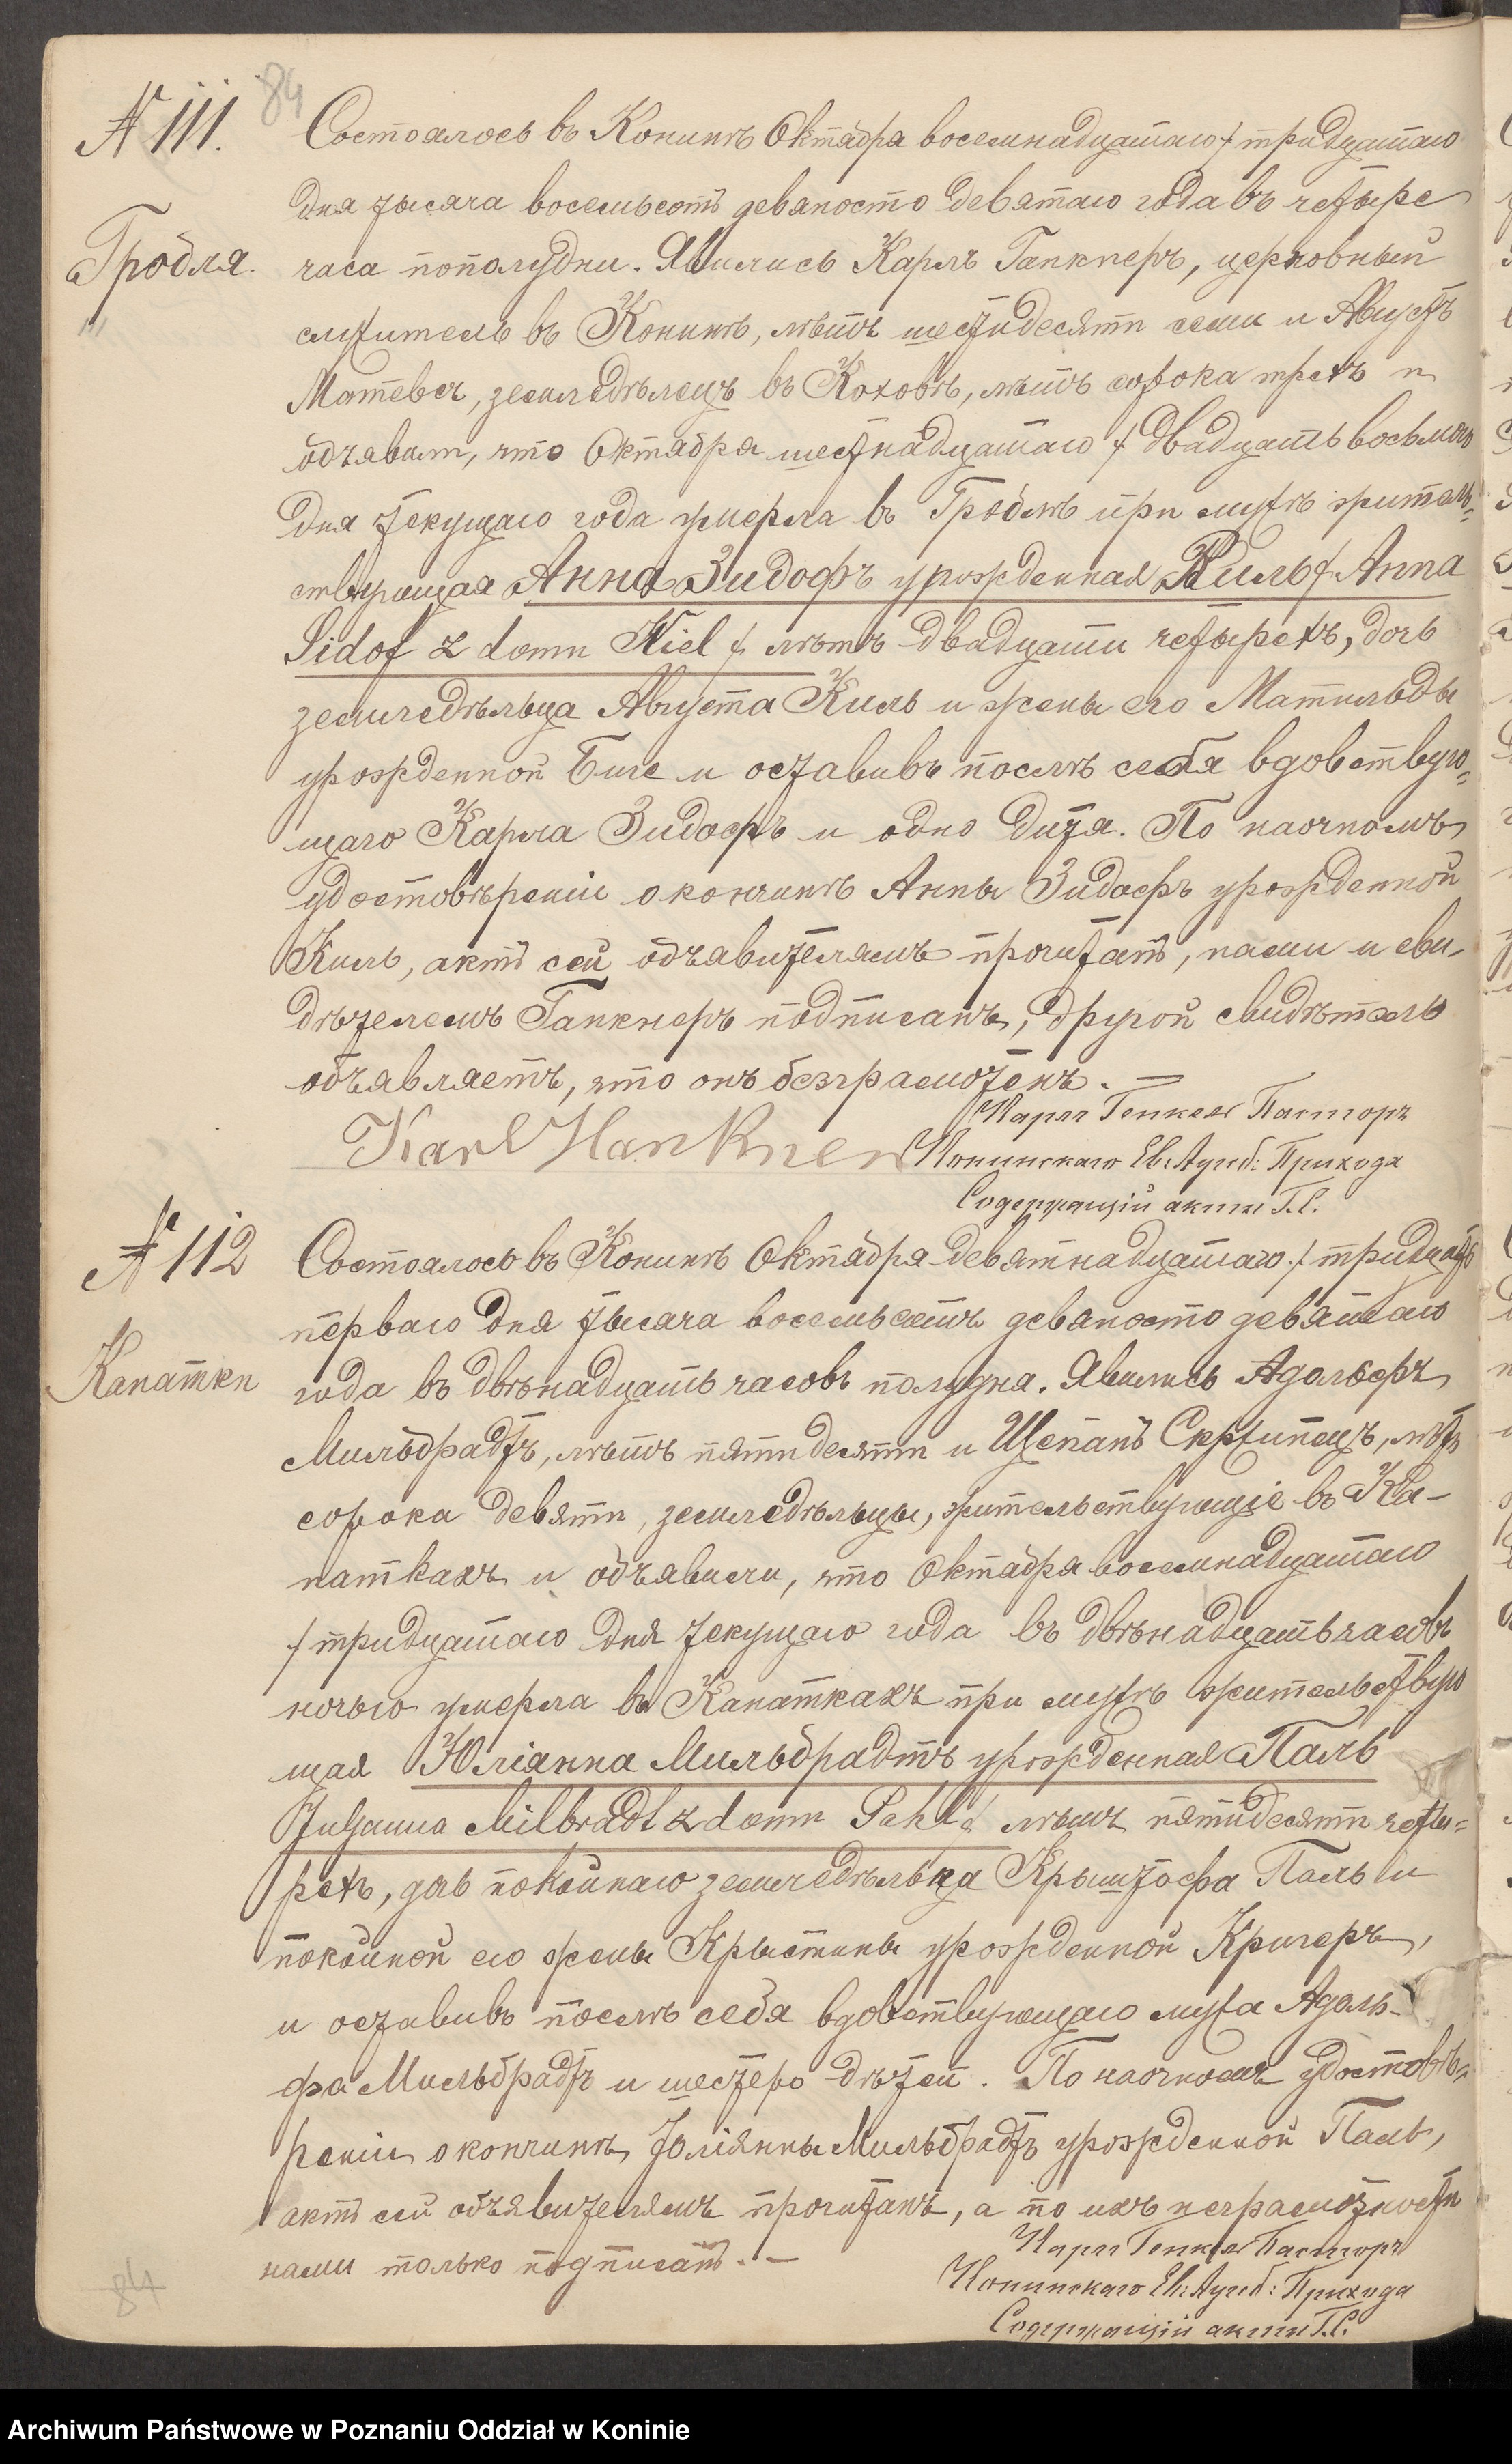 84
№ 111.
Гродля.
Состоялось въ Конинѣ Октября восемнадцатаго / тридцатаго
дня тысяча восемьсотъ девяносто девятаго года въ четыре
часа пополудни. Явились Карлъ Ганкнеръ, церковный
служитель въ Конинѣ, лѣтъ шестидесяти семи и Августъ
Матевсъ, земледѣлецъ въ Коховѣ, лѣтъ сорока трехъ и
объявили, что Октября шестнадцатаго / двадцать восьмаго
дня текущаго года умерла въ Гродлѣ при мужѣ житель-
ствующая Анна Зидофъ урожденная Киль / Anna
Sidof z domu Kiel / лѣтъ двадцати четырехъ, дочь
земледѣльца Августа Киль и жены его Матильды
урожденной и оставивъ послѣ себя вдовствую-
щаго Карла Зидофъ и одно дитя. По наочномъ
удостовѣреніи о кончинѣ Анны Зидофъ урожденной
Киль, актъ сей объявителямъ прочитанъ, нами и сви-
дѣтелемъ Ганкнеръ подписанъ, другой свидѣтель
объявляетъ, что онъ безграмотенъ. —
Karl Hankner
Карлъ Генкель Пасторъ
Конинскаго Ев: Аугсб: Прихода
Содержащій акты Г.С.
№ 112
Канатки
Состоялось въ Конинѣ Октября девятнадцатаго / тридцать
перваго дня тысяча восемьсотъ девяносто девятаго
года въ двѣнадцать часовъ полудня. Явились Адольфъ
Мильбрадтъ, лѣтъ пятидесяти и Щепанъ Скржипецъ, лѣтъ
сорока девяти, земледѣльцы, жительствующіе въ Ка-
наткахъ и объявили, что Октября восемнадцатаго
/ тридцатаго дня текущаго года въ двѣнадцать часовъ
ночью умерла въ Канаткахъ при мужѣ жительствую
щая Юліанна Мильбрадтъ урожденная Паль
/ Julianna Milbradt z domu Pahl / лѣтъ пятидесяти четы-
рехъ, дочь покойнаго земледѣльца Крыштофа Паль и
покойной его жены Крыстины урожденной Кригеръ,
и оставивъ послѣ себя вдовствующаго мужа Адоль-
фа Мильбрадтъ и шестеро дѣтей. По наочномъ удостовѣ-
реніи о кончинѣ Юліянны Мильбрадтъ урожденной Паль,
актъ сей объявителямъ прочитанъ, а по ихъ неграмотности
нами только подписанъ. —
Карлъ Генкель Пасторъ
Конинскаго Ев: Аугсб: Прихода
Содержащій акты Г.С.
84
Archiwum Państwowe w Poznaniu Oddział w Koninie